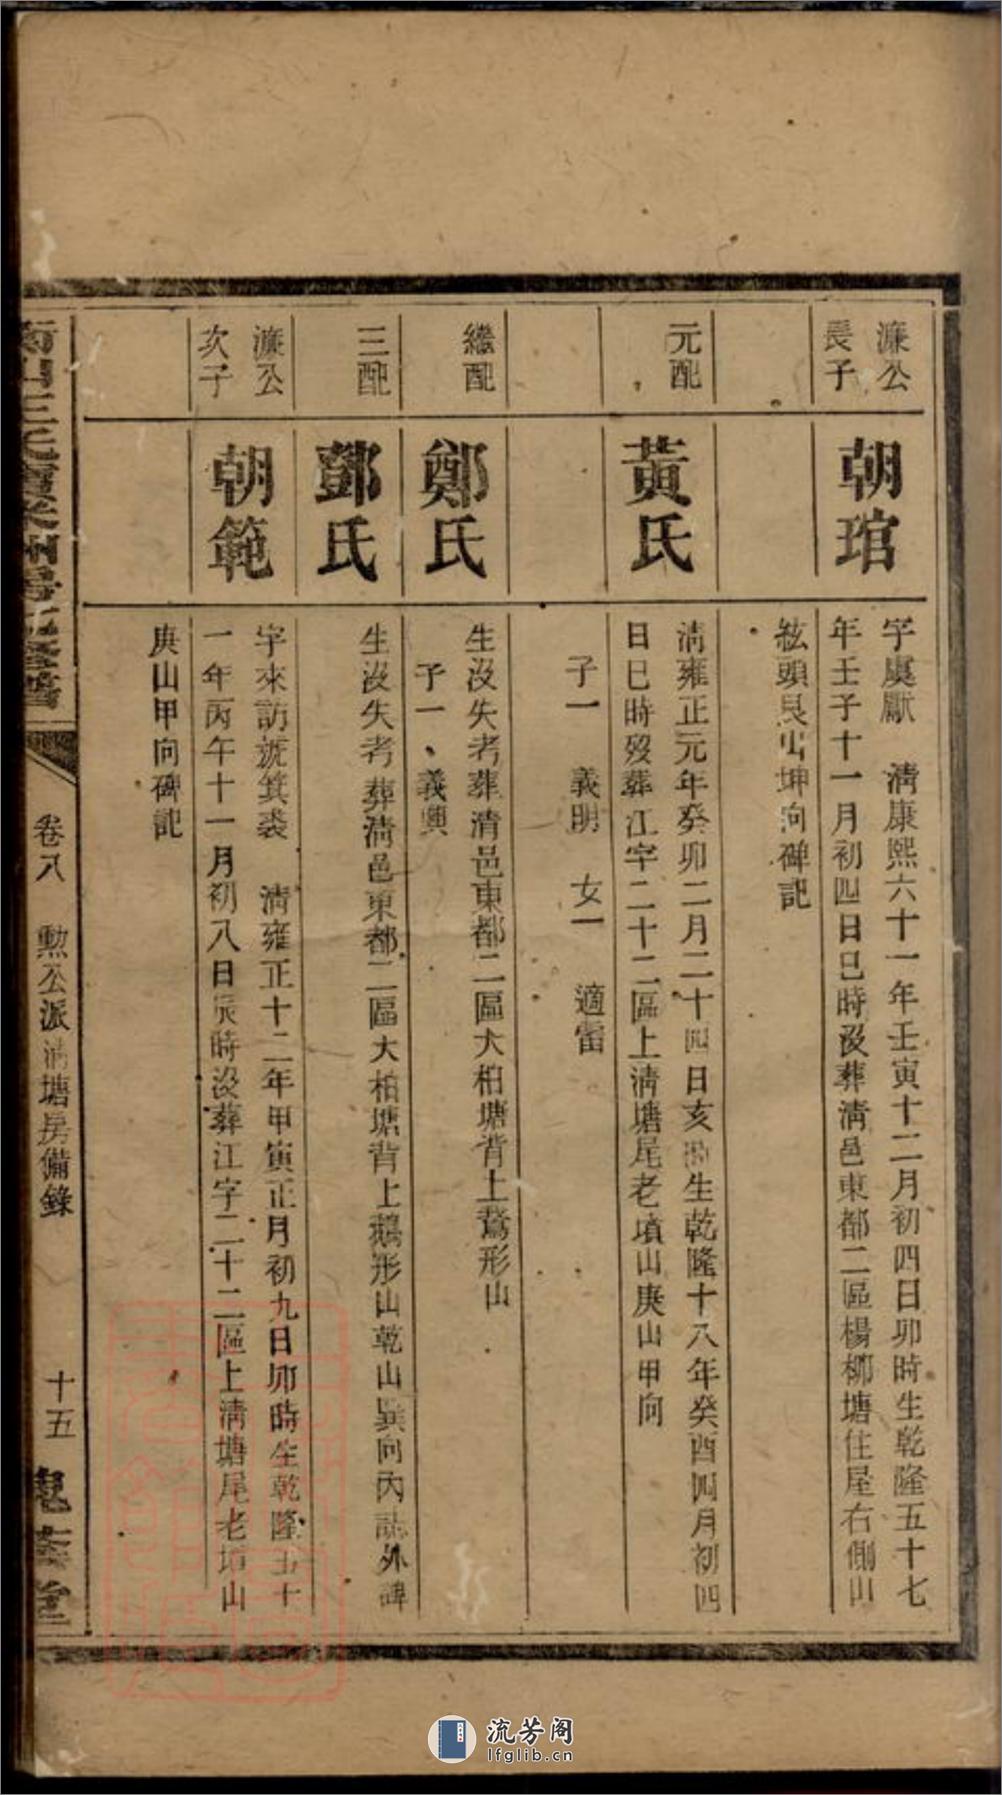 濂公
長子
朝琯
字虞獻　清康熙六十一年壬寅十二月初四日卯時生乾隆五十七
年壬子十一月初四日巳時沒葬清邑東都二區楊柳塘住屋右側山
絃頭艮山坤向碑記
元配
黃氏
清雍正元年癸卯二月二十四日亥時生乾隆十八年癸酉四月初四
日巳時歿葬江字二十二區上清塘尾老墳山庚山甲向
子一　義明　女一　適雷
繼配
鄭氏
生沒失考葬清邑東都二區大柏塘背上鵞形山
子一、義興
三配
鄧氏
生沒失考葬清邑東都二區大柏塘背上鵝形山乾山巽向內誌外碑
濂公
次子
朝範
字來訪號箕裘　清雍正十二年甲寅正月初九日卯時生乾隆五十
一年丙午十一月初八日辰時沒葬江字二十二區上清塘尾老墳山
庚山甲向碑記
卷八　勳公派清塘房備錄
十五
堂
流芳阁
lfglib.cn